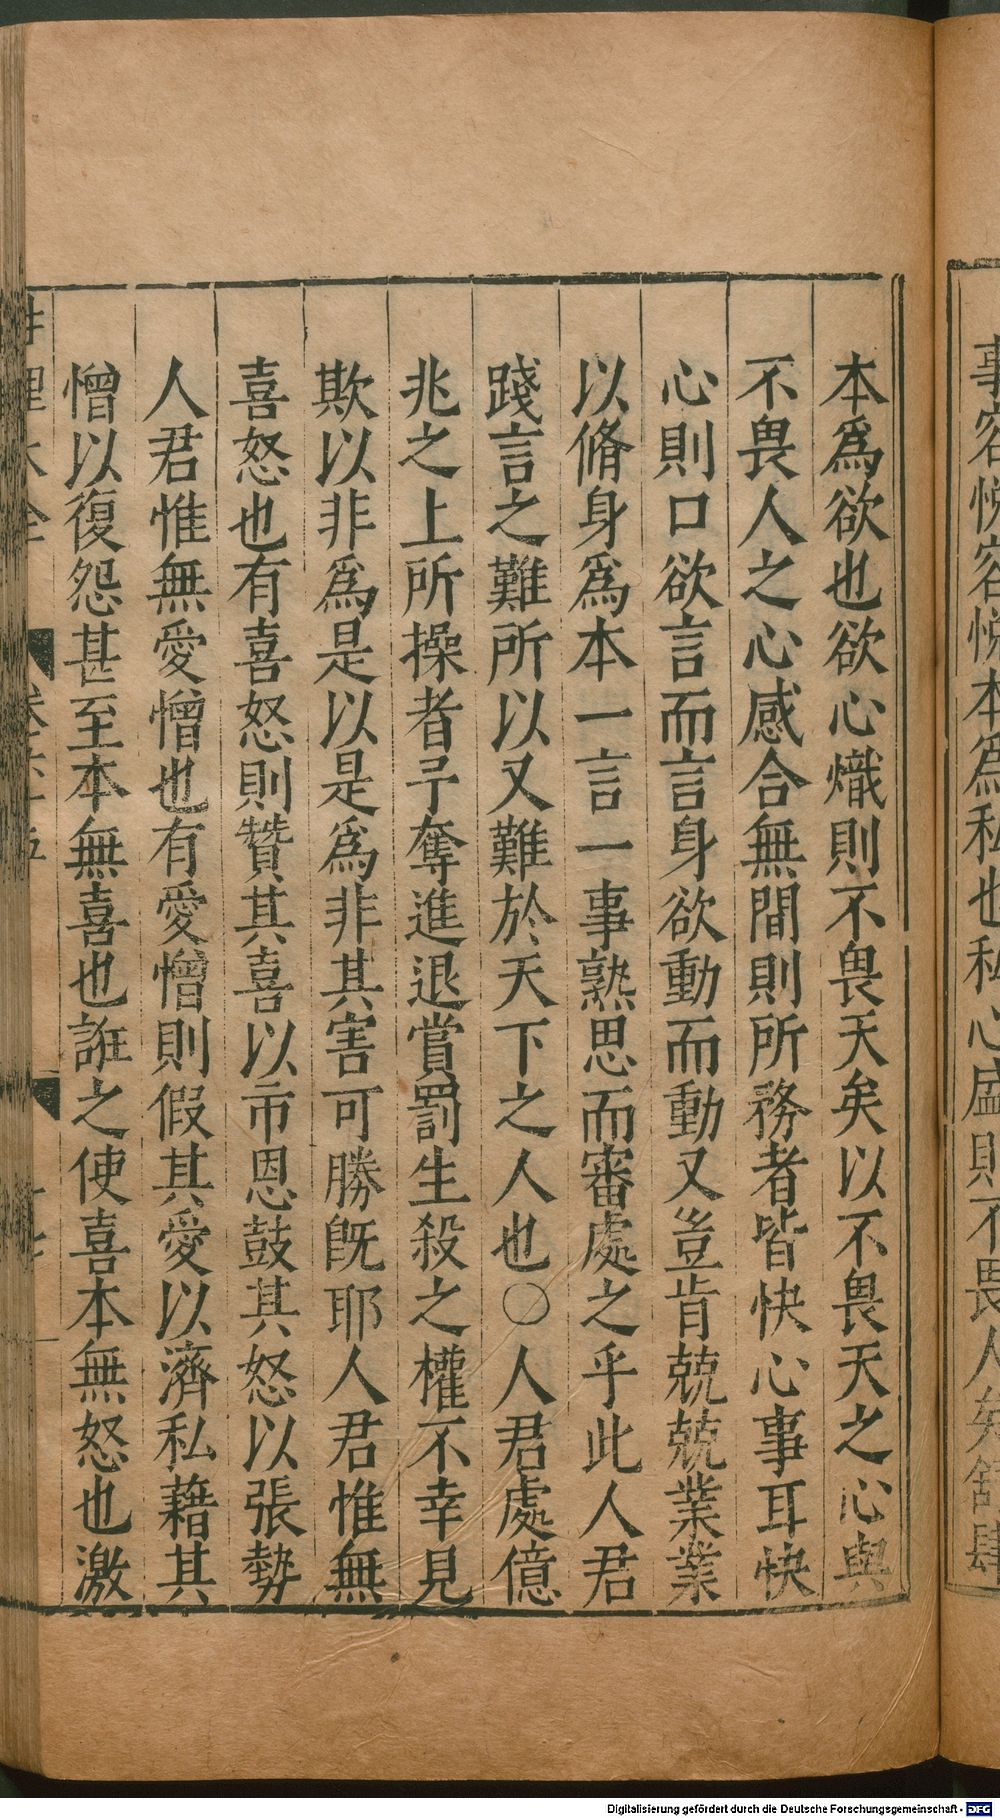 事容悅容悅本爲私也私心盛則不畏人矣舒肆
本爲欲也欲心熾則不畏天矣以不畏天之心與
不畏人之心感合無間則所務者皆快心事耳快
心則口欲言而言身欲動而動又豈肯兢兢業業
以脩身爲本一言一事熟思而審處之乎此人君
踐言之難所以又難於天下之人也○人君處億
兆之上所操者予奪進退賞罰生殺之權不幸見
欺以非爲是以是爲非其害可勝旣耶人君惟無
喜怒也有喜怒則贊其喜以市恩鼓其怒以張勢
人君惟無愛憎也有愛憎則假其愛以濟私藉其
憎以復怨甚至本無喜也誑之使喜本無怒也激
Digitalisierung gefördert durch die Deutsche Forschungsgemeinschaft - DFG